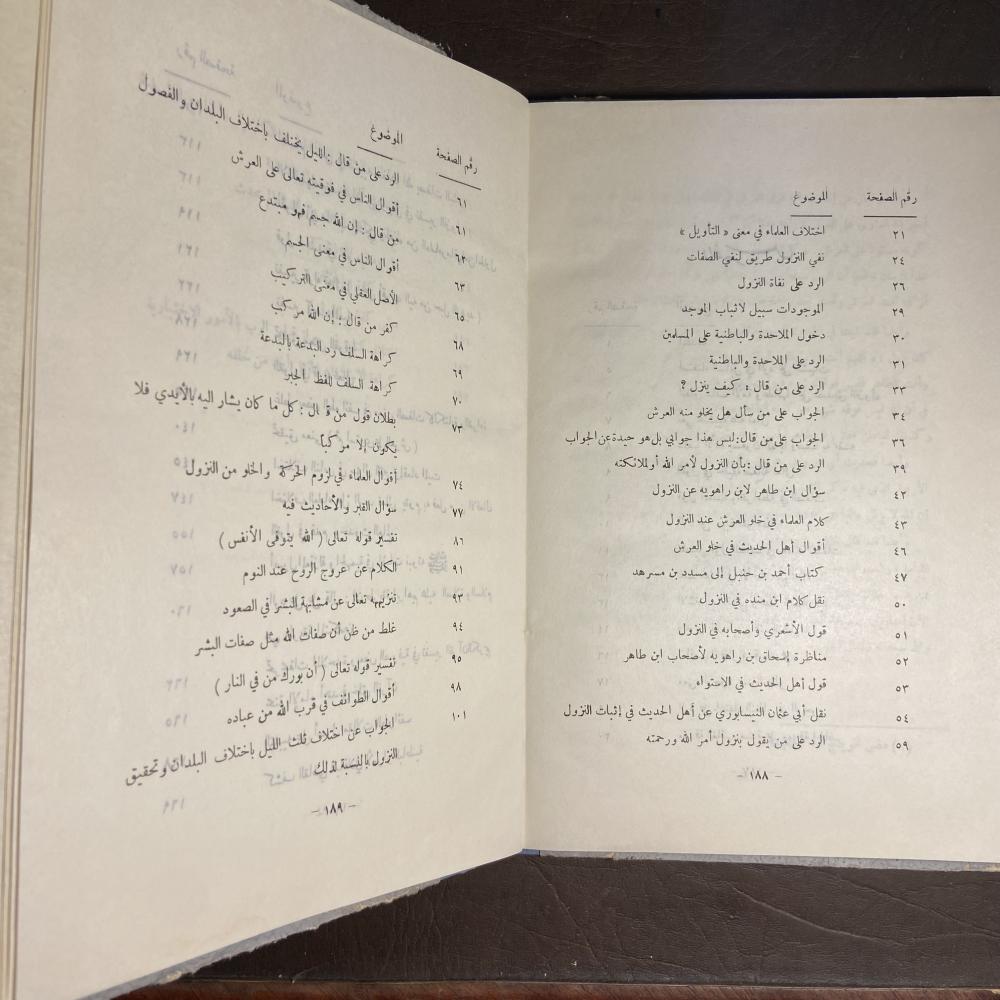 رقم الصفحة الموضوع
٢١ اختلاف العلماء في معنى « التأويل »
٢٤ نفي النزول طريق لنفي الصفات
٢٦ الرد على نفاة النزول
٢٩ الموجودات سبيل لاثباب الموجد
٣٠ دخول الملاحدة والباطنية على المسلمين
٣١ الرد على الملاحدة والباطنية
٣٣ الرد على من قال : كيف ينزل ؟
٣٤ الجواب على من سأل هل يخلو منه العرش
٣٦ الجواب على من قال : ليس هذا جوابي بل هو حيدة عن الجواب
٣٩ الرد على من قال : بأن النزول لأمر الله أو لملائكته
٤٢ سؤال ابن طاهر لابن راهويه عن النزول
٤٣ كلام العلماء في خلو العرش عند النزول
٤٦ أقوال أهل الحديث في خلو العرش
٤٧ كتاب أحمد بن حنبل إلى مسدد بن مسرهد
٥٠ نقل كلام ابن منده في النزول
٥١ قول الأشعري وأصحابه في النزول
٥٢ مناظرة إسحاق بن راهويه لأصحاب ابن طاهر
٥٣ قول أهل الحديث في الاستواء
٥٤ نقل أبي عثمان النيسابوري عن أهل الحديث في إثبات النزول
٥٩ الرد على من يقول بنزول أمر الله ورحمته
– ١٨٨ –
رقم الصفحة الموضوع
٦١ الرد على من قال : الليل يختلف باختلاف البلدان والفصول
٦١ أقوال الناس في فوقيته تعالى على العرش
٦٢ من قال : إن الله جسم فهو مبتدع
٦٣ أقوال الناس في معنى الجسم
٦٥ الأصل العقلي في معنى التركيب
٦٨ كفر من قال : إن الله مركب
٦٩ كراهة السلف رد البدعة بالبدعة
٧٠ كراهة السلف للفظ الجبر
٧٣ بطلان قول من قال : كل ما كان يشار اليه بالأيدي فلا
يكون إلا مركباً
٧٤ أقوال العلماء في لزوم الحركة والخلو من النزول
٧٧ سؤال القبر والأحاديث فيه
٨٦ تفسير قوله تعالى ( الله يتوفى الأنفس )
٩١ الكلام عن عروج الروح عند النوم
٩٣ تنزيهه تعالى عن مشابهة البشر في الصعود
٩٤ غلط من ظن أن صفات الله مثل صفات البشر
٩٥ تفسير قوله تعالى ( أن بورك من في النار )
٩٨ أقوال الطوائف في قرب الله من عباده
١٠١ الجواب عن اختلاف ثلث الليل باختلاف البلدان وتحقيق
النزول بالنسبة لذلك
– ١٨٩ –